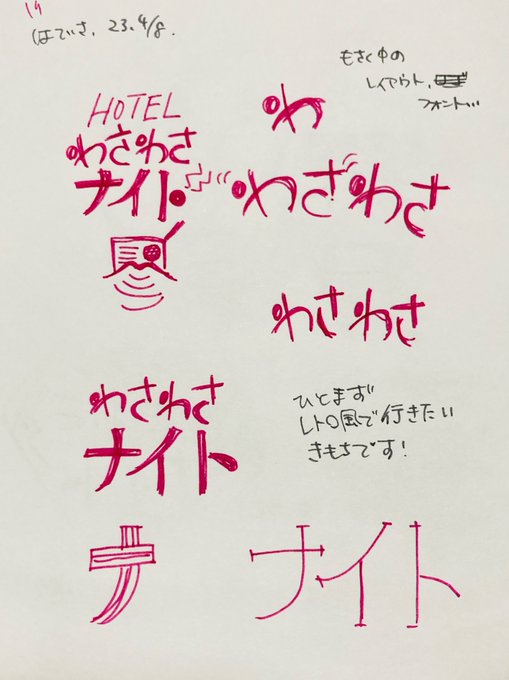 23. 4/8.
もさく中の
レイアウト、
フォント…
HOTEL
わさわさ
ナイト
わ
わさわさ
わさわさ
わさわさ
ナイト
ひとまず
レトロ風で行きたい
きもちです!
ナ
ナイト